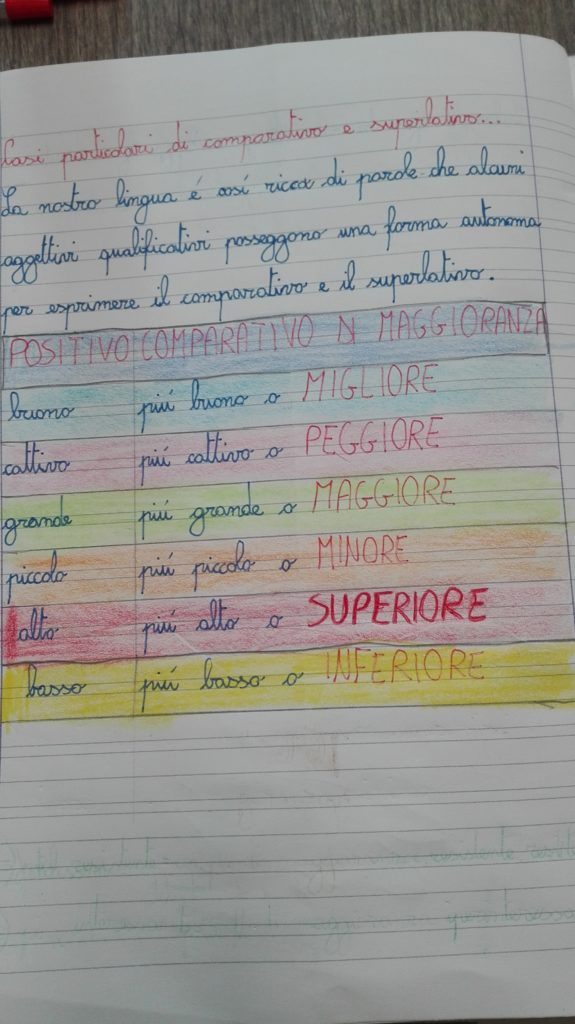 Casi particolari di comparativo e superlativo...
La nostra lingua é cosí ricca di parole che alcuni
aggettivi qualificativi posseggono una forma autonoma
per esprimere il comparativo e il superlativo.
POSITIVO COMPARATIVO DI MAGGIORANZA
buono piú buono o MIGLIORE
cattivo piú cattivo o PEGGIORE
grande piú grande o MAGGIORE
piccolo piú piccolo o MINORE
alto piú alto o SUPERIORE
basso piú basso o INFERIORE